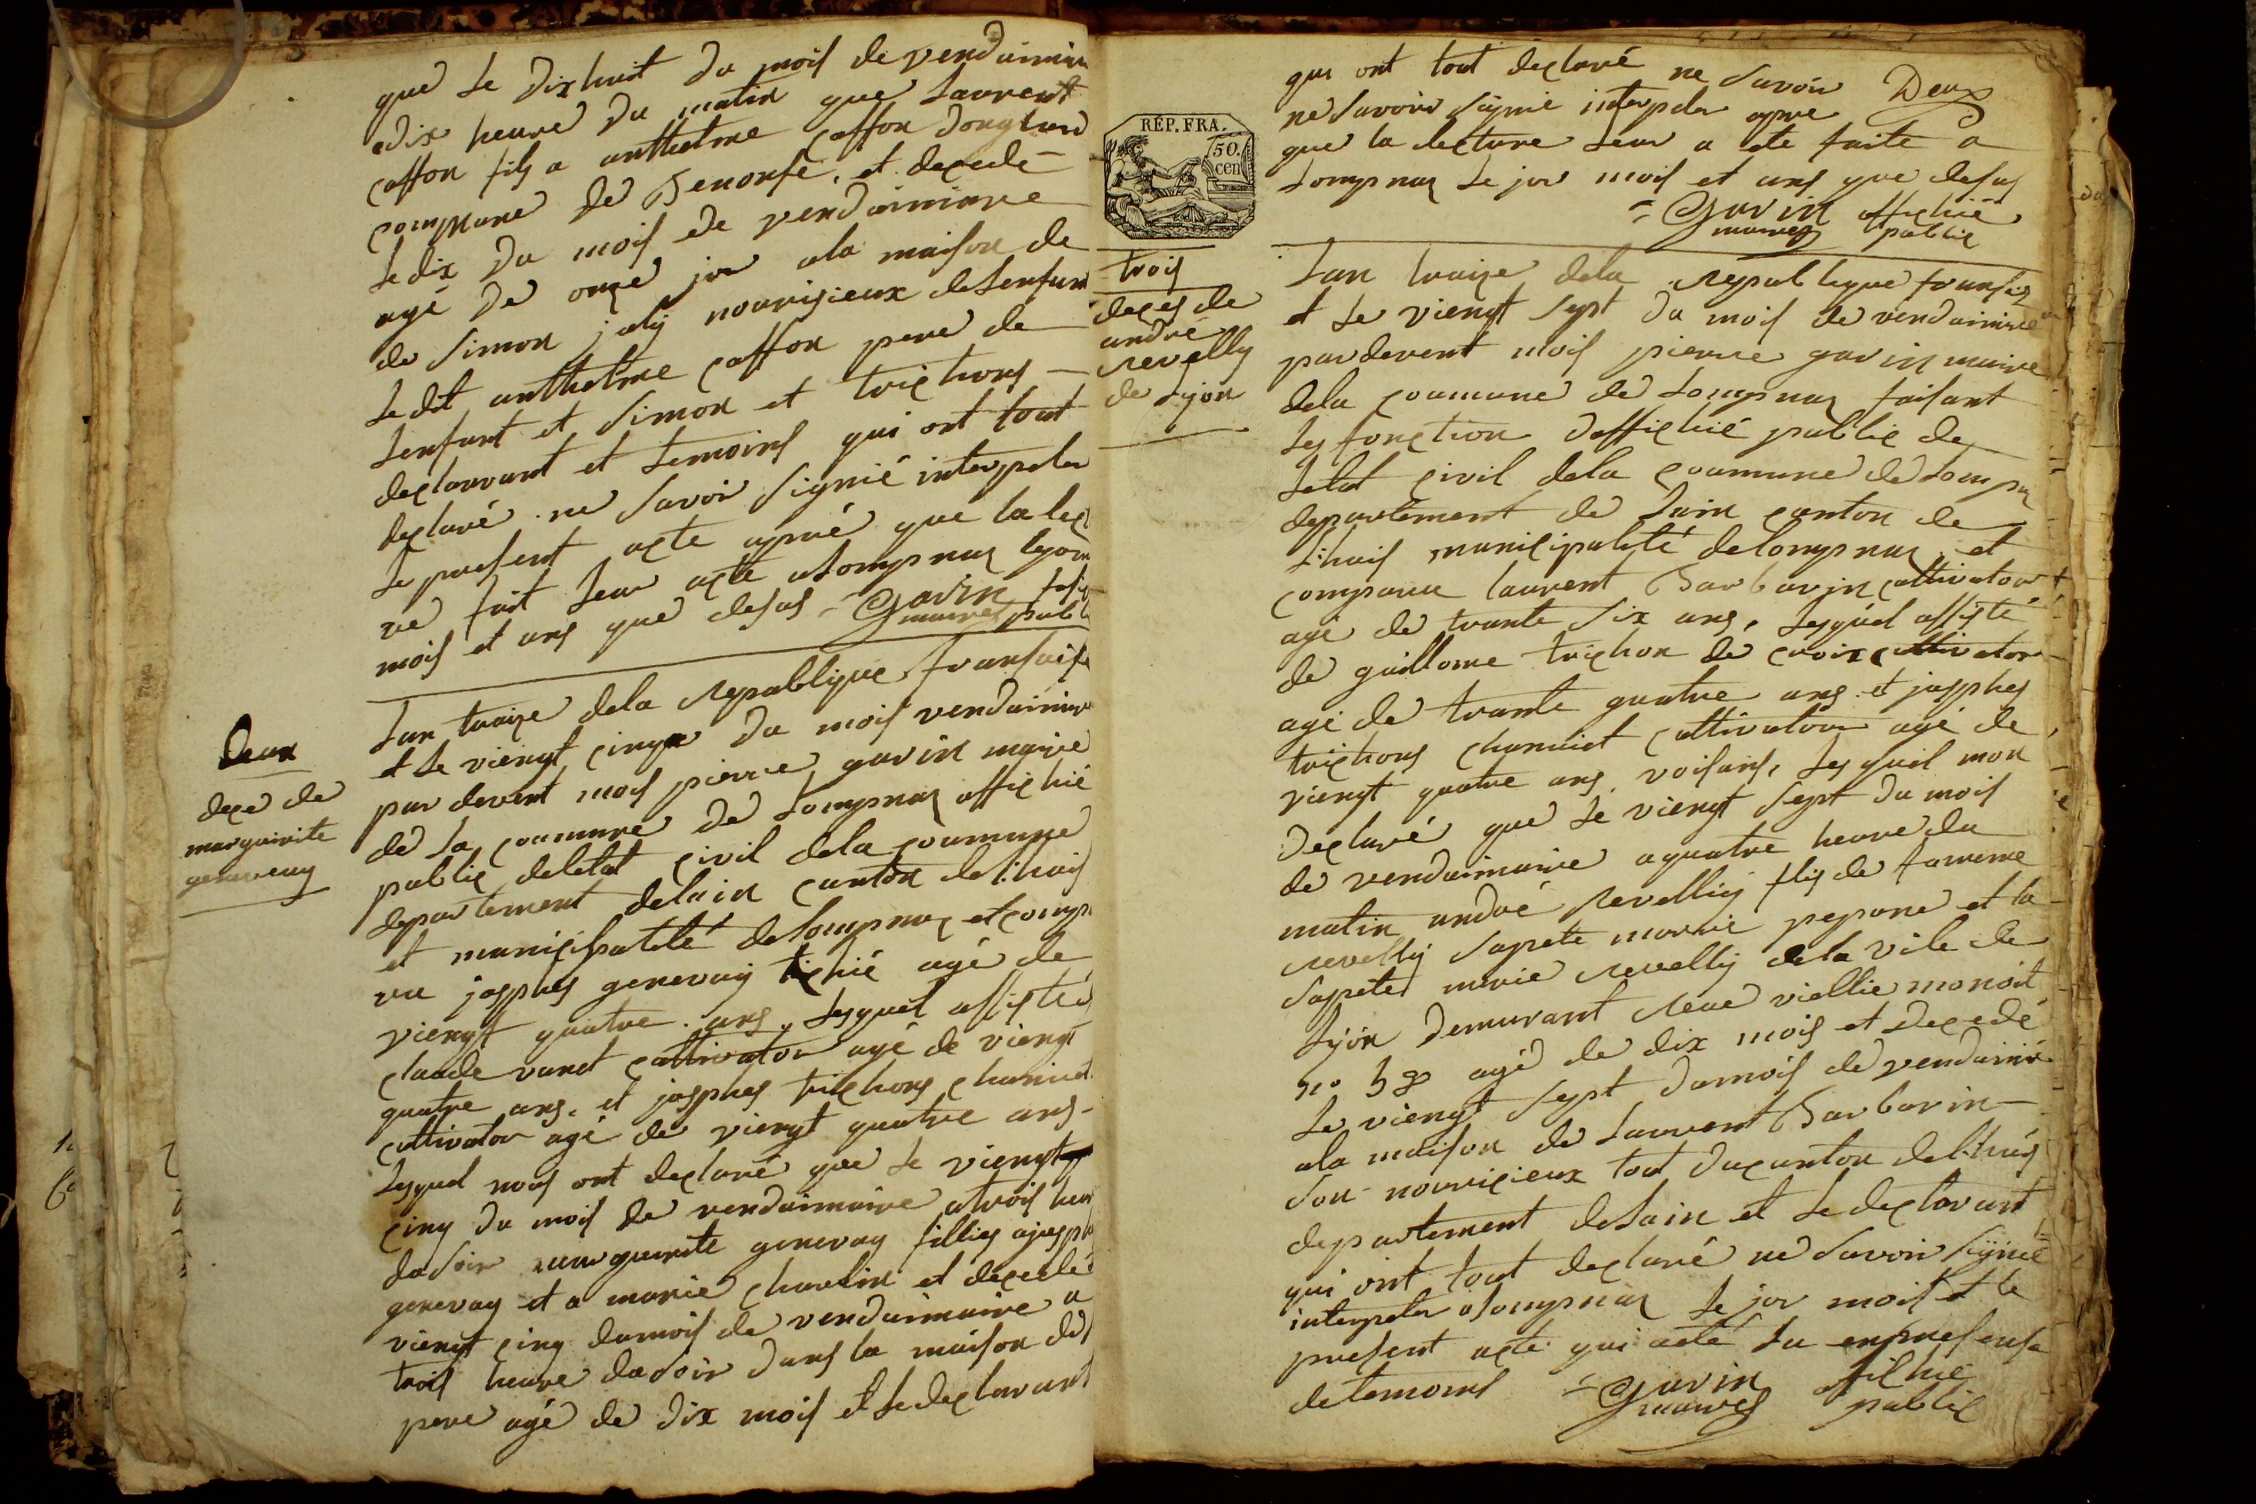 que le dix huit du mois de vendaimier
a dix heure du matin que laurent
caffon fils a anthelme caffon
commune de Benonse, et decede
le dix du mois de vendaimiaire
agé de onze jor ala maison de
de simon joly nourisieux de lenfant
le dit anthelme caffon pere de
lenfant et simon et trichons
declarrant et temoins qui ont tout
declaré ne savoir signié interpeler
le present acte aprué que la lec
re fait leur acte a lompnaz le jor
mois et ans que desus = Gavin
maires publi
Deux
dece de
marguirite
genevay
Lan traize dela republique fransaise
et le viengt cinqe du mois vendaimiair
par devent mois pierre gavin maire
de la coumune de lompnaz affichié
public deletat civil dela coumune
departement delain canton de lhuis
et municipalité de lompnaz et compa
ru josphes genevay agé de
viengt quatre ans lesquel assisté
claude vanet cultivator agé de viengt
quatre ans. et josphes trichons chaniet
cultivator agé de viengt quatre ans
lesquel nous ont declaré que le viengt
cinq du mois de vendaimaire a trois heur
dusoir marguerite genevay fillies a josph
genevay et a marie charlin et decedé
viengt cinq dumois de vendaimaire a
trois heure dusoir dans la maison de
pere agé de dix mois et le declarant
Deux
qui ont tout declaré ne savoir
ne savoir signié interpeler apre
que la lecture leur a ete faite a
Lompnaz le jor mois et ans que desus
= Gavin affichié
maires public
RÉP. FRA.
50.
cen
trois
deces de
andré
revelly
de lyon
Lan traize dela republique fransaise
et le viengt sept du mois de vendaimire
pardevent mois pierre gavin maire
dela coumune de Lompnaz faisant
les fonction daffichié public de
letat civil dela coumune de Lompn
departement de Lain canton de
lhuis municipalité de lompnaz et
comparu laurent Barbarin cultivatour
agé de trante six ans, lesquel assisté
de guillome trichon de croix cultivator
agé de trante quatre ans et josphes
trichons chaniet cultivatour agé de
viengt quatre ans voisins, lesquel mon
declaré que le viengt sept du mois
de vendaimaire aquatre heure du
matin andré revelliy flis de
revelly sapete marrie pepone et la
sapete marie revelly dela vile de
Lyon demurant reue viellie monoit
n° 38 agé de dix mois et decedé
le viengt sept dumois de vendaimire
ala maison de laurent Barbarin
son nouricieux tout ducanton delhuis
departement delain et le declarant
qui ont tout declaré ne savoir signié
interpeler a lompnaz le jor mois et le
present acte qui aeté lu enpresense
detemoins = Gavin affichié
maires public